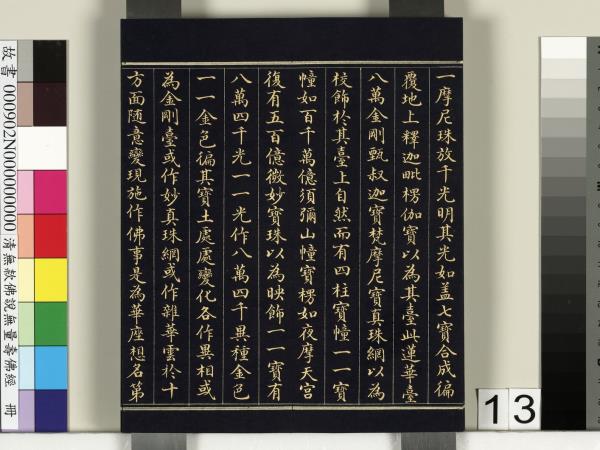 一摩尼珠放千光明其光如盖七寶合成徧
覆地上釋迦毗楞伽寶以為其臺此蓮華臺
八萬金剛甄叔迦寶梵摩尼寶真珠網以為
校飾於其臺上自然而有四柱寶幢一一寶
幢如百千萬億須彌山幢寶楞如夜摩天宮
復有五百億微妙寶珠以為映飾一一寶有
八萬四千光一一光作八萬四千異種金色
一一金色徧其寶土處處變化各作異相或
為金剛臺或作妙真珠網或作雜華雲於十
方面随意變現施作佛事是為華座想名第
故書 000902N000000000 清無款佛說無量壽佛經 冊
13